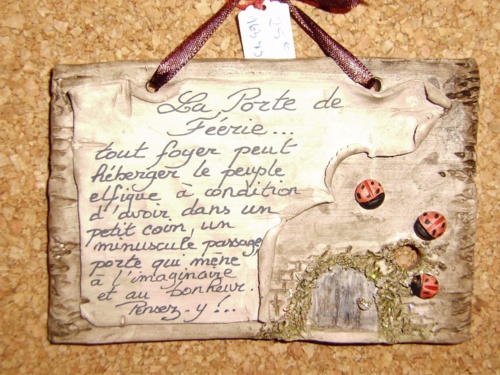 La Porte de
Féerie...
tout foyer peut
héberger le peuple
elfique à condition
d'avoir dans un
petit coin, un
minuscule passage,
porte qui mène
à l'imaginaire
et au bonheur.
Pensez-y !...